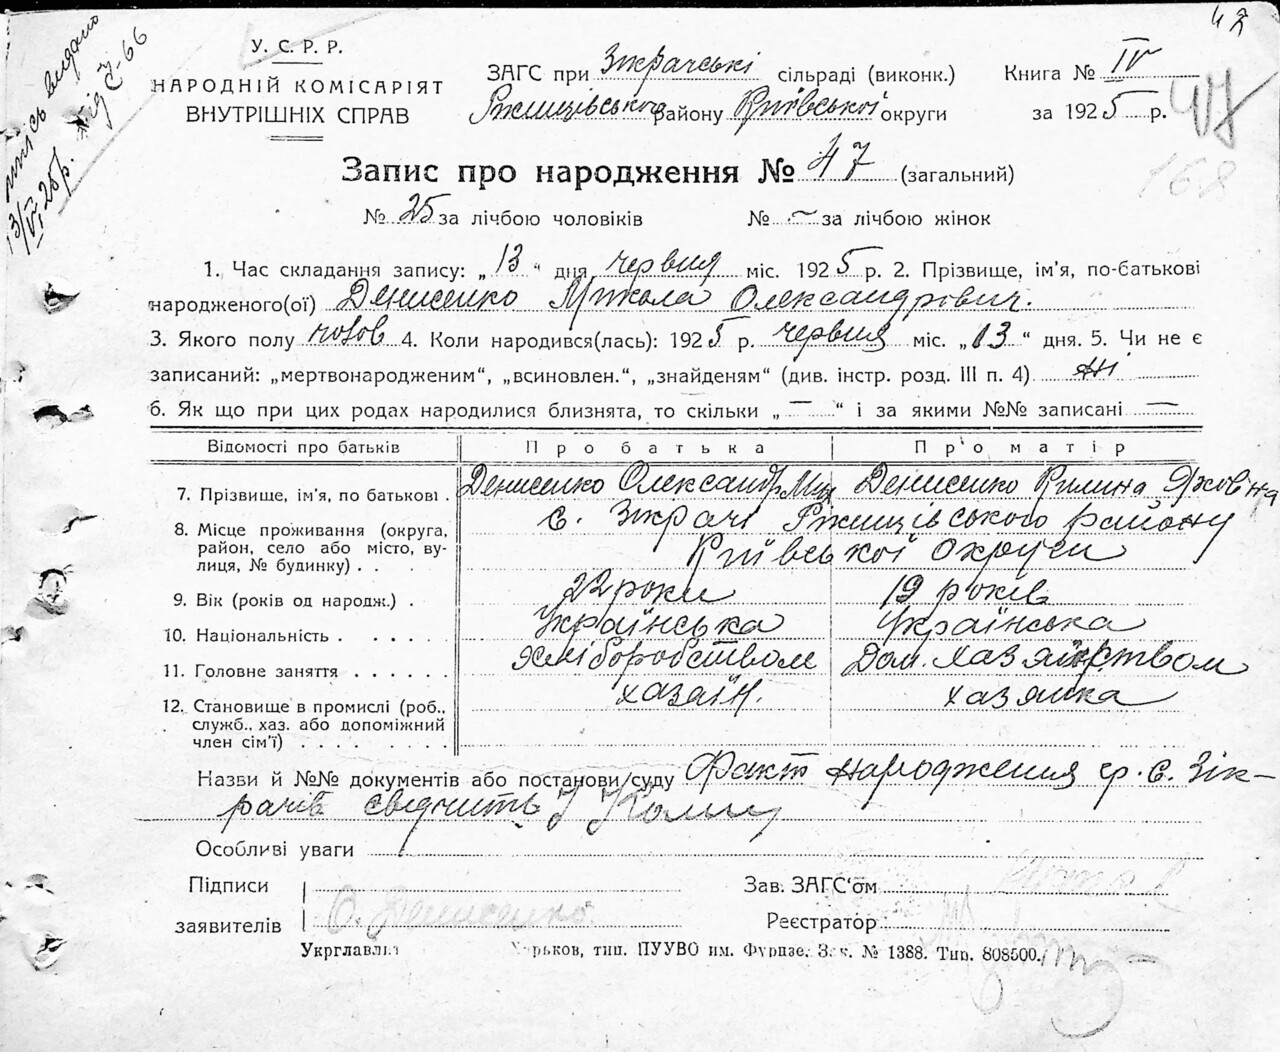 42
випись видано
13/VI 25 р. під Є-66
У. С. Р. Р.
НАРОДНІЙ КОМІСАРІЯТ
ВНУТРІШНІХ СПРАВ
ЗАГС при Зікрачські сільраді (виконк.)
Ржищівського району Київської округи
Книга № IV
за 1925 р.
47
168
Запис про народження № 47 (загальний)
№ 25 за лічбою чоловіків № – за лічбою жінок
1. Час складання запису: „13" дня червня міс. 1925 р. 2. Прізвище, ім'я, по-батькові
народженого(ої) Денисенко Микола Олександрович.
3. Якого полу чолов 4. Коли народився(лась): 1925 р. червня міс. „13" дня. 5. Чи не є
записаний: „мертвонародженим", „всиновлен.", „знайденям" (див. інстр. розд. III п. 4) ні
6. Як що при цих родах народилися близнята, то скільки „—" і за якими №№ записані —
Відомості про батьків Про батька Про матір
7. Прізвище, ім'я, по батькові . Денисенко Олександр Мик Денисенко Килина Яковівна
8. Місце проживання (округа, с. Зікрачі Ржищівського району
район, село або місто, ву- Київської округи
лиця, № будинку) . . .
9. Вік (років од народж.) . 22 роки 19 років
10. Національність . . . . . Українська Українська
11. Головне заняття . . . . . . Хліборобством Дом. хазяйством
12. Становище в промислі (роб., хазаїн. хазяйка
служб., хаз. або допоміжний
член сім'ї) . . . . . . . .
Назви й №№ документів або постанови суду Факт народження гр. с. Зік-
рачів свідчить
Особливі уваги
Підписи
заявителів О. Денисенко
Зав. ЗАГС'ом
Реєстратор
Укрглавлит Харьков, тип. ПУУВО им. Фрунзе. Зак. № 1388. Тир. 808500.